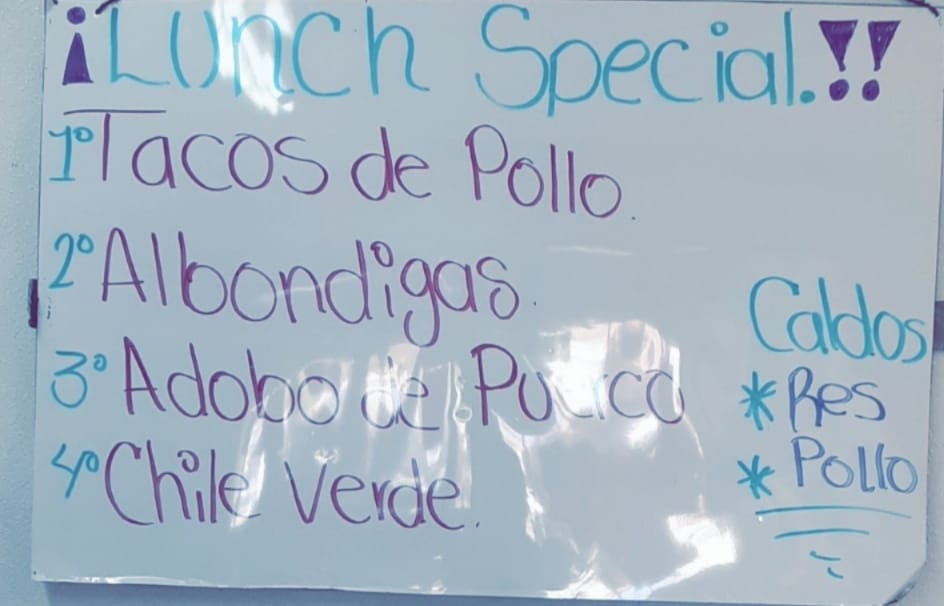 ¡Lunch Special.!!
1º Tacos de Pollo.
2º Albondigas.
3º Adobo de
4º Chile Verde.
Caldos
* Res
* Pollo